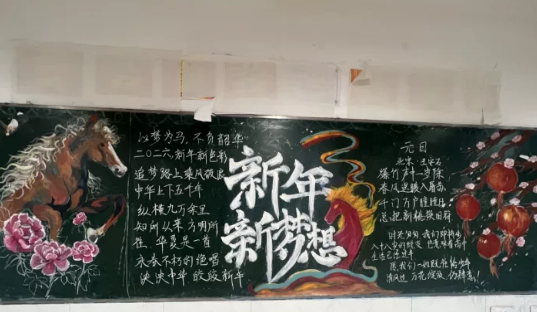 以梦为马，不负韶华
二〇二六新年新色彩
追梦路上乘风破浪
中华上下五千年
纵横九万余里
知所从来 方明所
在 华夏是一首
永春不朽的绝唱
泱泱中华 皎皎新年
新年
新梦想
元日
北宋 王安石
爆竹声中一岁除
春风送暖入屠苏
千门万户曈曈日
总把新桃换旧符